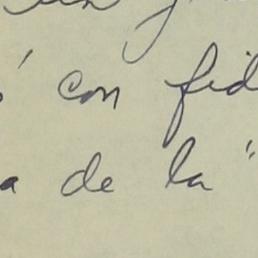 con fid
a de la "